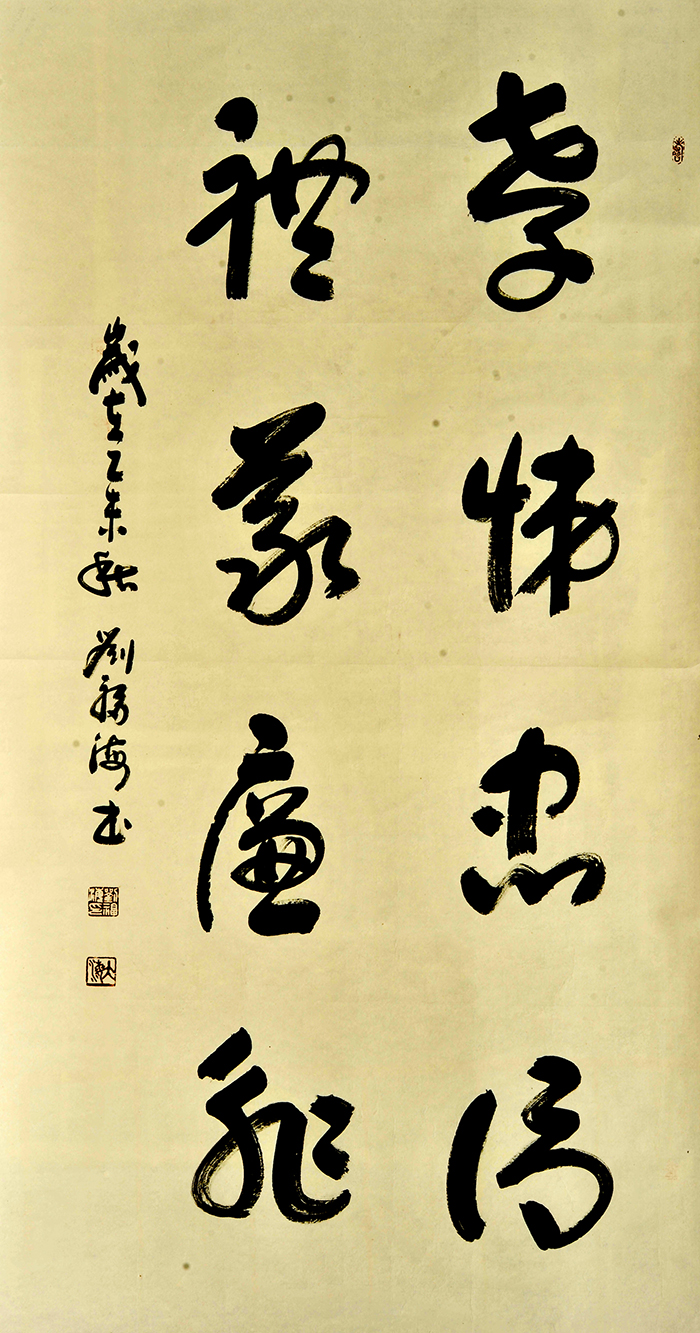 孝悌忠信
禮義廉耻
歲在乙未秋劉福海书